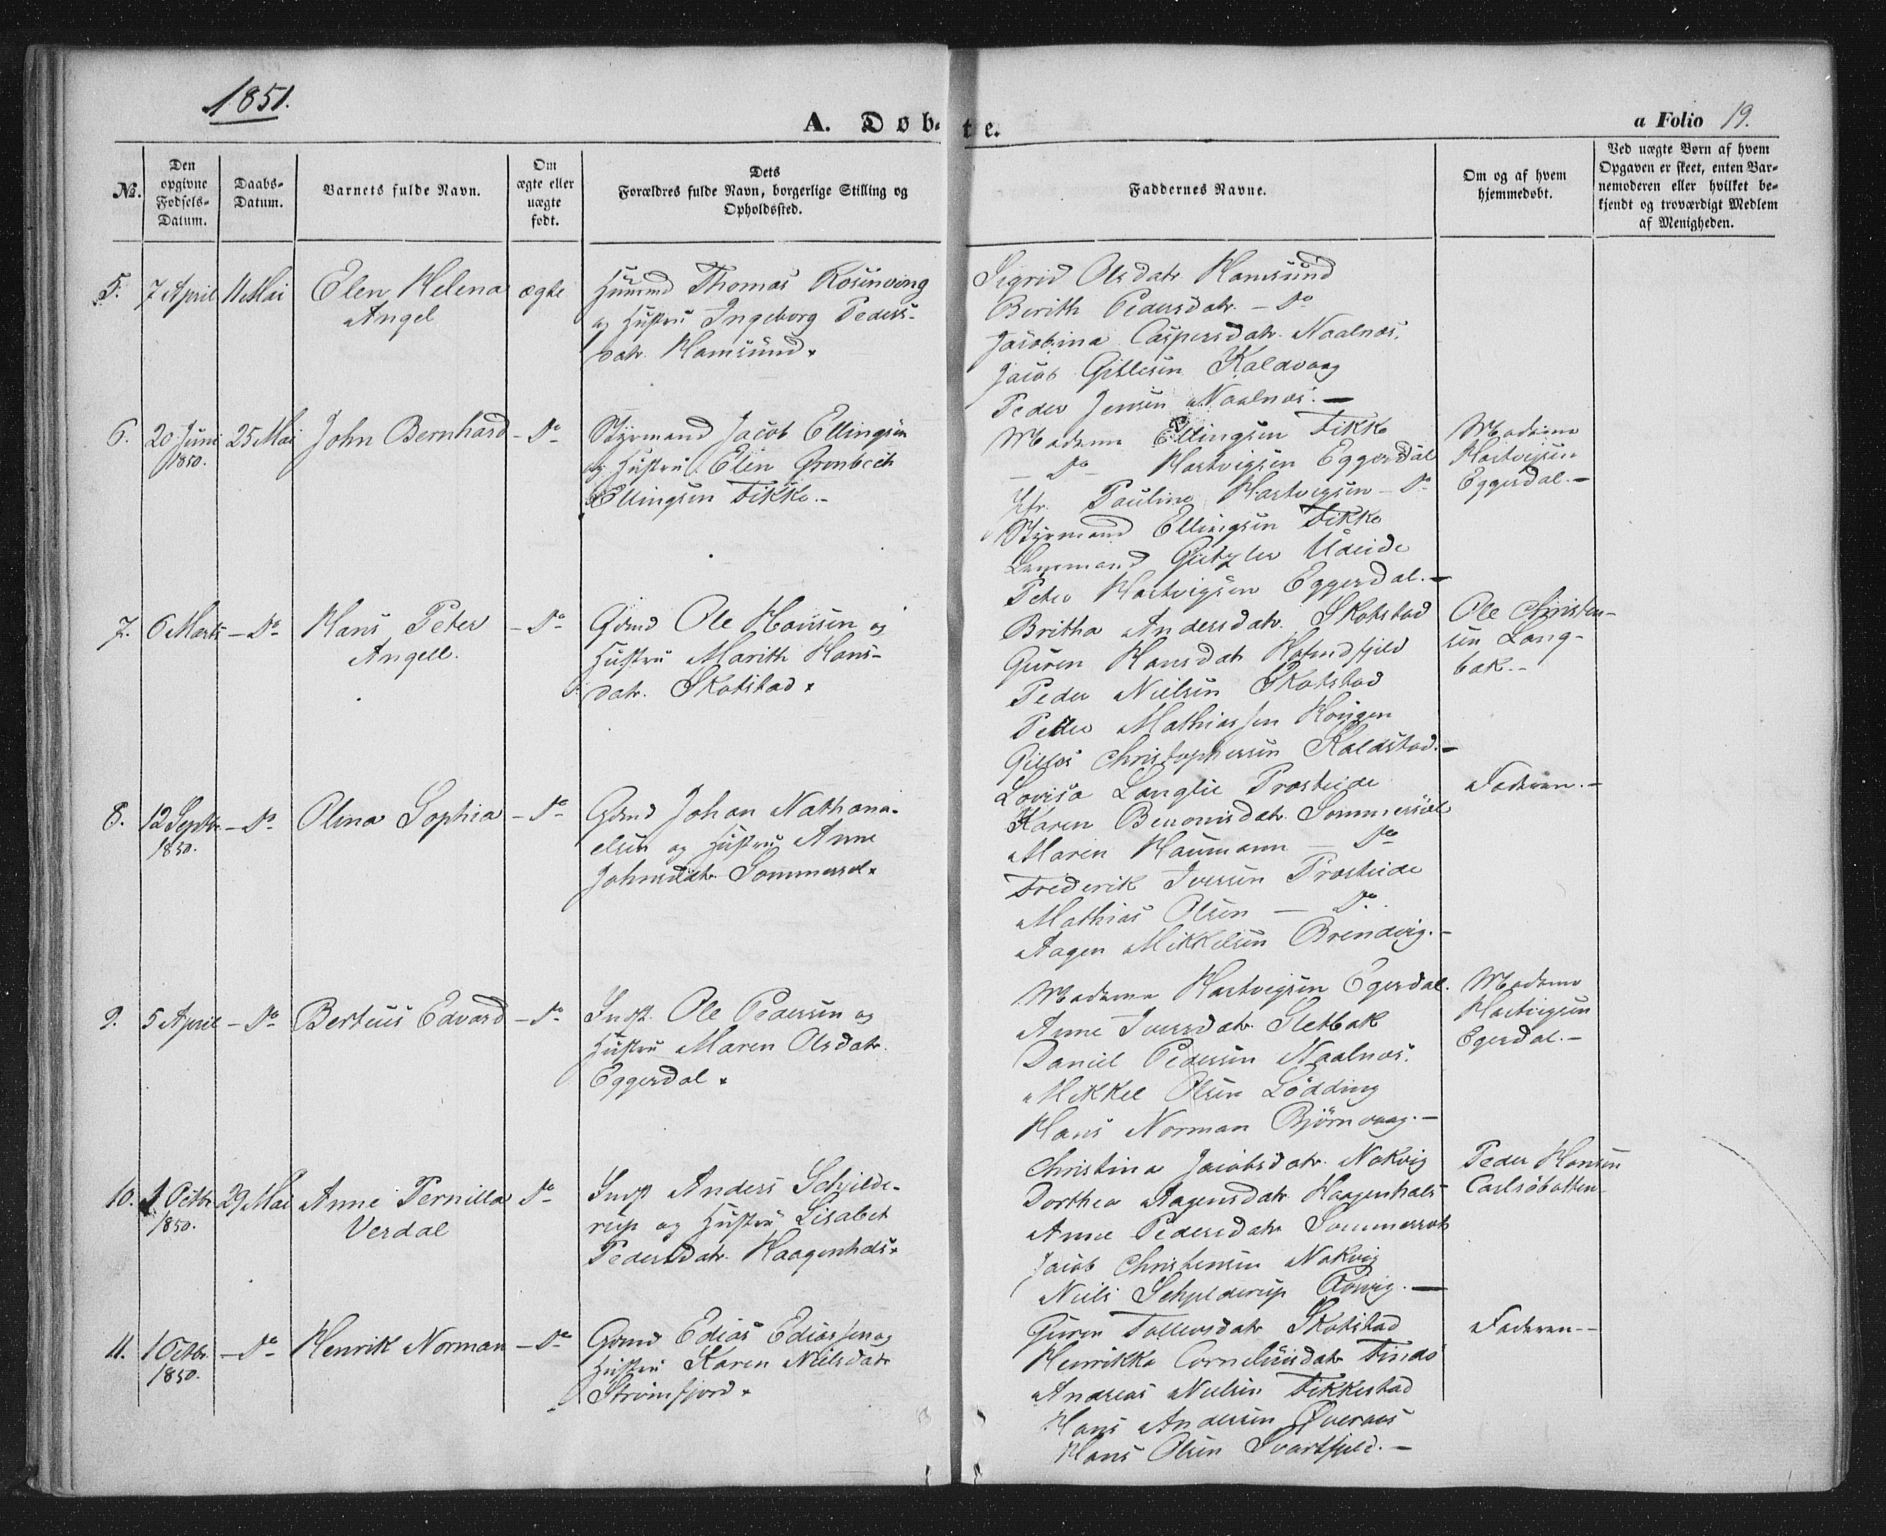 1851.
A. Døbte.
a Folio 19.
No.
Den opgivne Fødsels-Datum.
Daabs-Datum.
Barnets fulde Navn.
Om ægte eller uægte født.
Dets Forældres fulde Navn, borgerlige Stilling og Opholdssted.
Faddernes Navne.
Om og af hvem hjemmedøbt.
Ved uægte Børn af hvem Opgaven er skeet, enten Barnemoderen eller hvilket bekjendt og troværdigt Medlem af Menigheden.
5. 7 April 11 Mai Elen Helena ægte Huusmd Thomas Rosenving
Angel og Hustru Ingeborg Peders-
datr. Hamsund.
Sigrid Olsdatr Hamsund
Berith Pedersdatr. - Do
Jacobina Caspersdatr. Naalnæs.
Jacob Gitlesen Kaldvaag
Peder Jensen Naalnæs. —
6. 20 Juni 25 Mai John Bernhard - Do Styrmand Jacob Ellingsen
1850. og Hustru Elen Grønbech
Ellingsen Fikke.-
Madame Ellingsen Fikke
- Do Hartvigsen Eggerdal
Jfr. Pauline Hartvigsen - Do
Styrmand Ellingsen Fikke
Lensmand Udeide
Peter Hartvigsen Eggerdal. —
Madame
Hartvigsen
Eggerdal.-
7. 6 Marts - Do Hans Peter - Do Grmd Ole Hansen og
Angell. Hustru Marith Hans-
datr. Skotstad.
Britha Andersdatr. Skotstad
Guren Hansdatr
Peder Nielsen Skotstad
Peder Mathiassen Haugen
Gitlos Christophersen Kaldstad.-
Ole Christen-
sen Lang-
bak.-
8. 12 Septbr. - Do Olina Sophia - Do Grmd Johan Nathana-
1850. elsen og Hustru Anne
Johnsdatr. Sommersel.
Lovisa Langlie Presteide
Karen Benonisdatr. Sommersel
Maren Haumann - Do
Frederik Iversen Presteide
Mathias Olsen - Do.
Aagen Mikkelsen Brendvig.-
Faderen.-
9. 5 April - Do Berteus Edvard - Do Indst. Ole Pedersen og
Hustru Maren Olsdatr.
Eggerdal.
Madame Hartvigsen Egerdal.
Anne Iversdatr. Sletbak
Daniel Pedersen Naalnæs.
Mikkel Olsen Lødding
Hans Norman Bjørnvaag.-
Madame
Hartvigsen
Egerdal.-
10. 1 Octbr. 29 Mai Anne Pernilla Do Indst Anders Schjelde-
1850. Verdal rup og Hustru Lisabet
Pedersdatr. Haagenhals.
Christina Jacobsdatr. Nakvig
Dorthea Aagensdatr. Haagenhals
Anne Pedersdatr Sommersæth
Jacob Christensen Nakvig
Niels Schjelderup —
Peder Hansen
Carlsøbotten-
11. 1 Octbr. - Do Henrik Norman - Do Grmd Edias Ediassen og
1850. Hustru Karen Nielsdatr
Strømfjord.
Guren Tollevsdatr Skotstad
Henrikke Corneliusdatr Findø
Andreas Nielsen Fikkestad
Hans Andersen Øvernæs
Hans Olsen Svartfjeld.-
Faderen.-